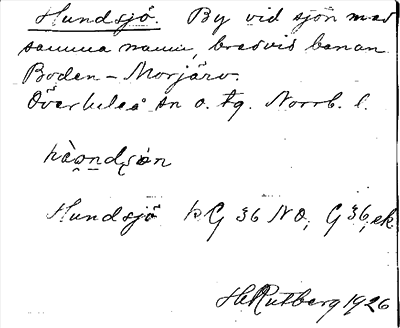 Hundsjö. By vid sjön med
samma namn, bredvid banan
Boden – Morjärv.
Överluleå sn o. tg. Norrb. l.
hà̠o̠ndʂøn
Hundsjö KG 36 NO, G 36, ek.
H. Rutberg 1926